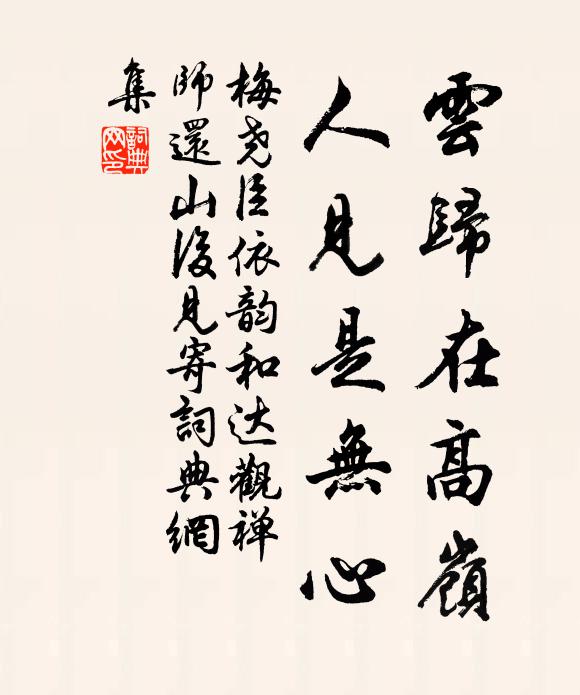 雲歸在高嶺
人見是無心
梅尧臣依韵和达觀禅
師還山後見寄詞典網
集
詞典
网印